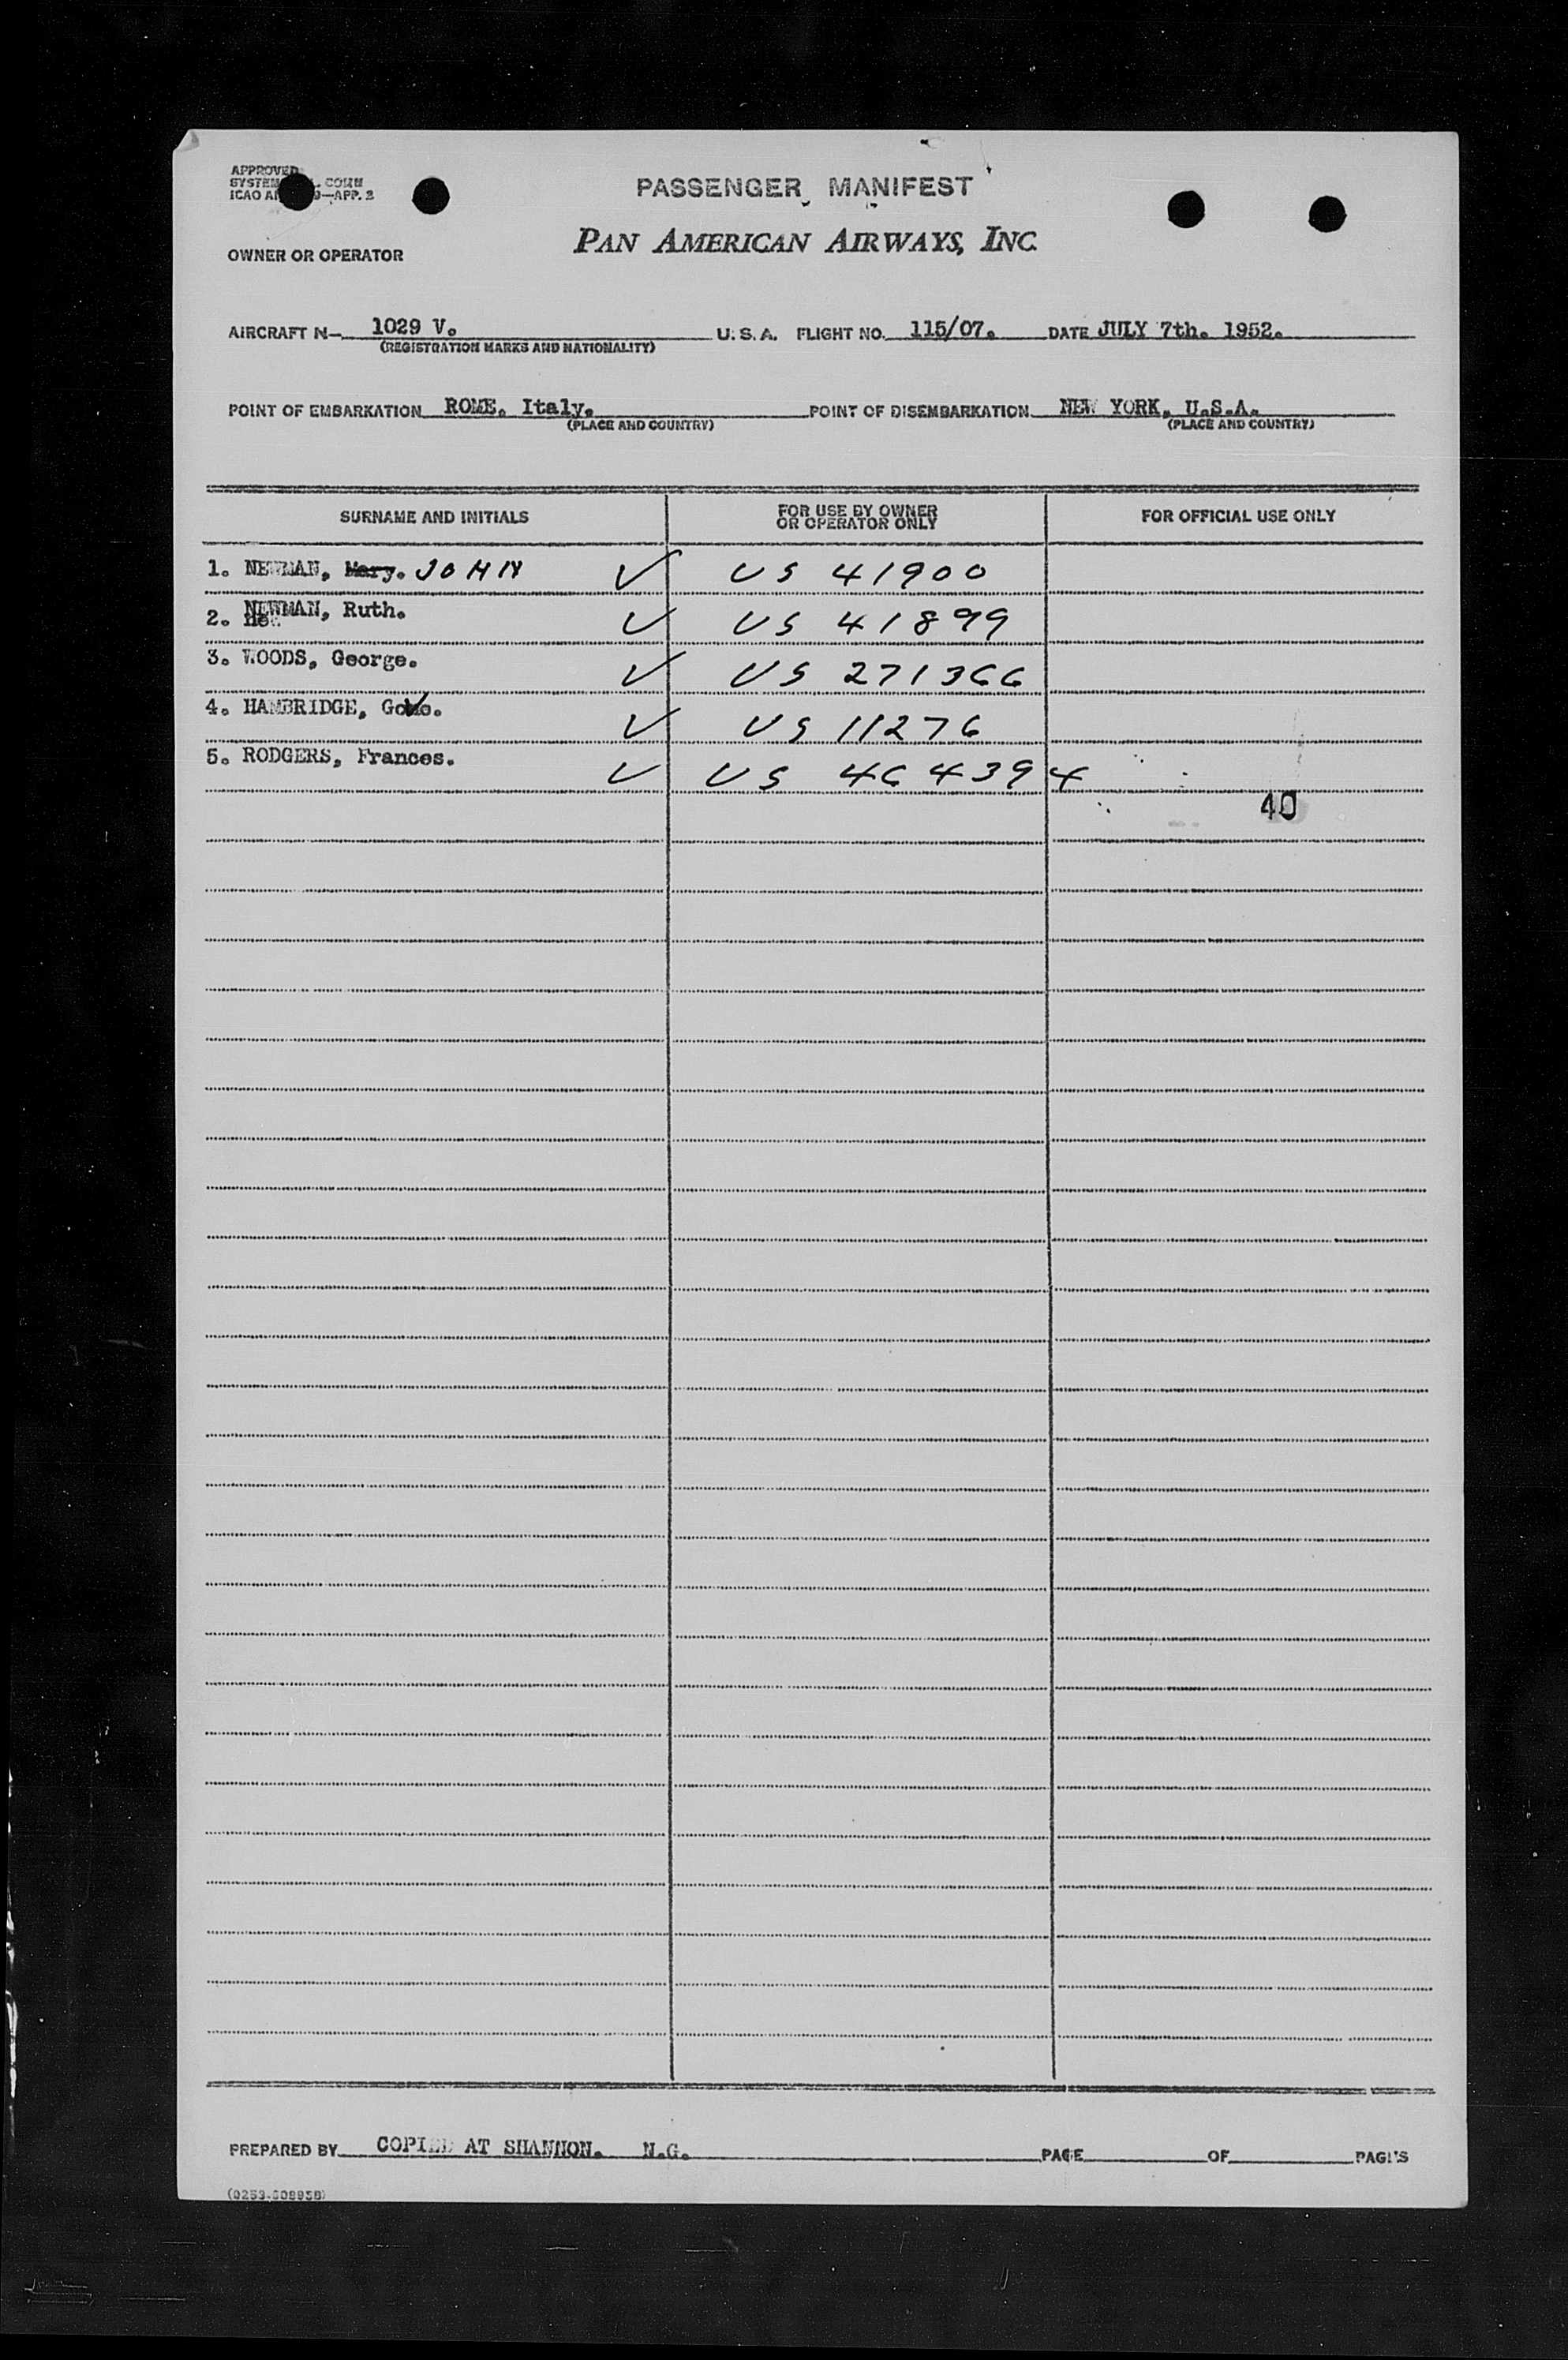 APPROVED
SYSTEM COMM
ICAO 9—APP. 2
PASSENGER MANIFEST
PAN AMERICAN AIRWAYS, INC.
OWNER OR OPERATOR
AIRCRAFT N— 1029 V. U.S.A. FLIGHT NO. 115/07. DATE JULY 7th. 1952.
(REGISTRATION MARKS AND NATIONALITY)
POINT OF EMBARKATION ROME. Italy. POINT OF DISEMBARKATION NEW YORK, U.S.A.
(PLACE AND COUNTRY) (PLACE AND COUNTRY)
SURNAME AND INITIALS FOR USE BY OWNER OR OPERATOR ONLY FOR OFFICIAL USE ONLY
1. NEWMAN, Mary. JOHN ✓ US 41900
2. NEWMAN, Ruth. ✓ US 41899
3. WOODS, George. ✓ US 271366
4. HAMBRIDGE, ✓ US 11276
5. RODGERS, Frances. ✓ US 464394
40
PREPARED BY COPIED AT SHANNON. N.G. PAGE OF PAGES